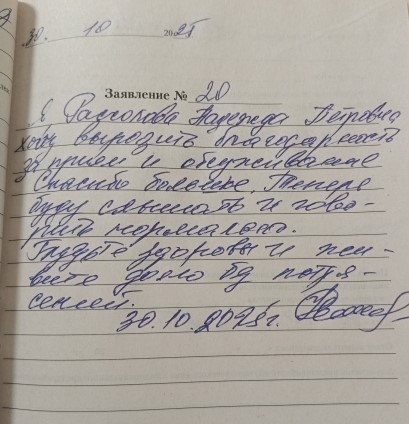 30. 10 2025
Заявление № 20
Я Рассохова Надежда Петровна
хочу выразить благодарность
за прием и обслуживание
Спасибо большое. Теперь
буду слышать и гово-
рить нормально.
Будьте здоровы и жи-
вите долго без потря-
сений.
30.10.2025г.